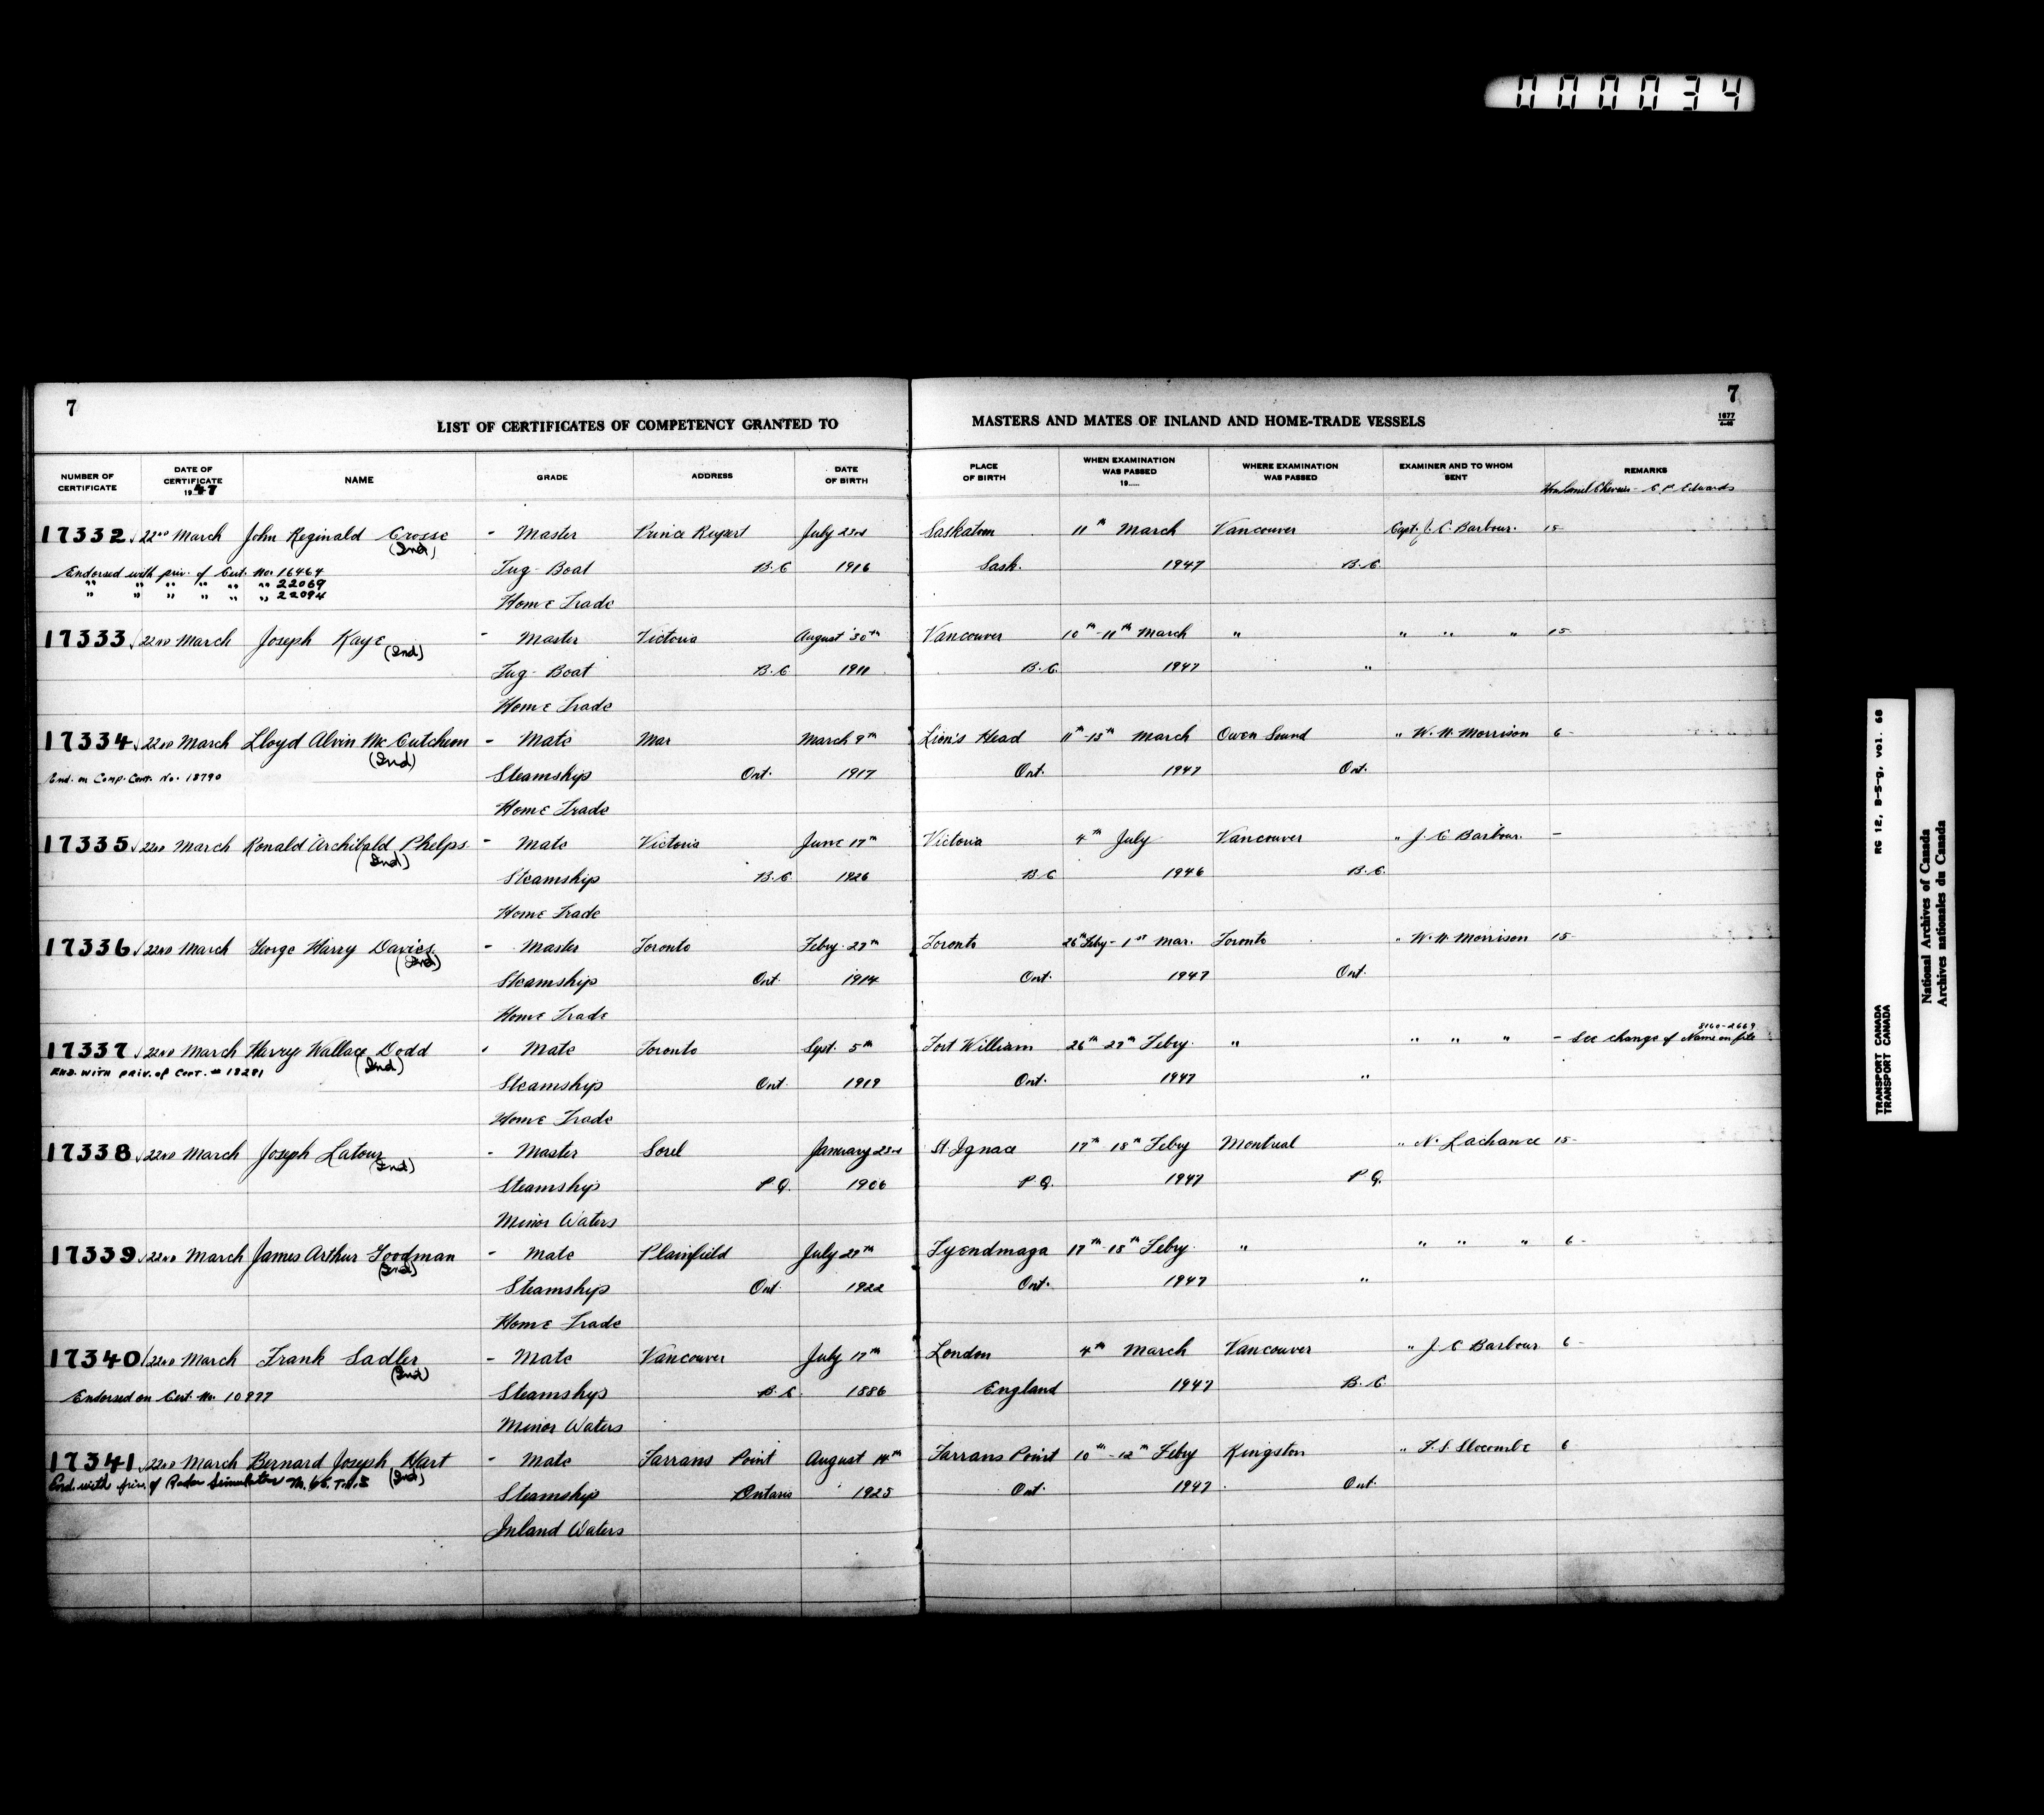 000034
7
7
LIST OF CERTIFICATES OF COMPETENCY GRANTED TO MASTERS AND MATES OF INLAND AND HOME-TRADE VESSELS
1677
NUMBER OF CERTIFICATE DATE OF CERTIFICATE 1947 NAME GRADE ADDRESS DATE OF BIRTH PLACE OF BIRTH WHEN EXAMINATION WAS PASSED 19..... WHERE EXAMINATION WAS PASSED EXAMINER AND TO WHOM SENT REMARKS
Edwards
17332 22nd March John Reginald Crosse - Master Prince Rupert July 23rd Saskatoon 11th March Vancouver Capt. J. C. Barbour. 15-
(Ind)
Endorsed with priv. of Cert. No. 16464 Tug-Boat B.C 1916 Sask. 1947 B.C.
" " " " " " 22069
" " " " " " 22094 Home Trade
17333 22nd March Joseph Kaye - Master Victoria August 30th Vancouver 10th-11th March " " " " 15-
(Ind)
Tug-Boat B.C 1911 B.C. 1947 "
Home Trade
17334 22nd March Lloyd Alvin McCutcheon - Mate Mar March 9th Lion's Head 11th-13th March Owen Sound " W. H. Morrison 6-
(Ind)
End. on Comp. Cert. No. 18790 Steamship Ont. 1917 Ont. 1947 Ont.
Home Trade
17335 22nd March Ronald Archibald Phelps - Mate Victoria June 17th Victoria 4th July Vancouver " J. C Barbour. -
(Ind)
Steamship B.C. 1926 B.C 1946 B.C.
Home Trade
17336 22nd March George Harry Davies - Master Toronto Febry. 27th Toronto 26th Feby-1st Mar. Toronto " W. H. Morrison 15-
(Ind)
Steamship Ont. 1914 Ont. 1947 Ont.
Home Trade
8160-2669
17337 22nd March Harry Wallace Dodd - Mate Toronto Sept. 5th Fort William 26th 27th Febry. " " " " - See change of Name on file
(Ind)
END. WITH PRIV. of CERT. # 18281 Steamship Ont. 1919 Ont. 1947 "
Home Trade
17338 22nd March Joseph Latour - Master Sorel January 23rd St Ignace 17th 18th Febry Montreal " N. Lachance 15-
(Ind)
Steamship P Q. 1906 P Q. 1947 P Q.
Minor Waters
17339 22nd March James Arthur Goodman - Mate Plainfield July 27th Tyendinaga 17th-18th Febry. " " " " 6-
(Ind)
Steamship Ont 1922 Ont. 1947 "
Home Trade
17340 22nd March Frank Sadler - Mate Vancouver July 17th London 4th March Vancouver " J. C Barbour 6-
(Ind)
Endorsed on Cert. No. 10977 Steamship B.C. 1886 England 1947 B.C.
Minor Waters
17341 22nd March Bernard Joseph Hart - Mate Farrans Point August 14th Farrans Point 10th-12th Febry Kingston " F. S. Slocombe 6
(Ind)
End. with priv. of Radar Simulator Steamship Ontario 1925 Ont. 1947 Ont.
Inland Waters
TRANSPORT CANADA RG 12, B-5-g, vol. 68
TRANSPORT CANADA
National Archives of Canada
Archives nationales du Canada